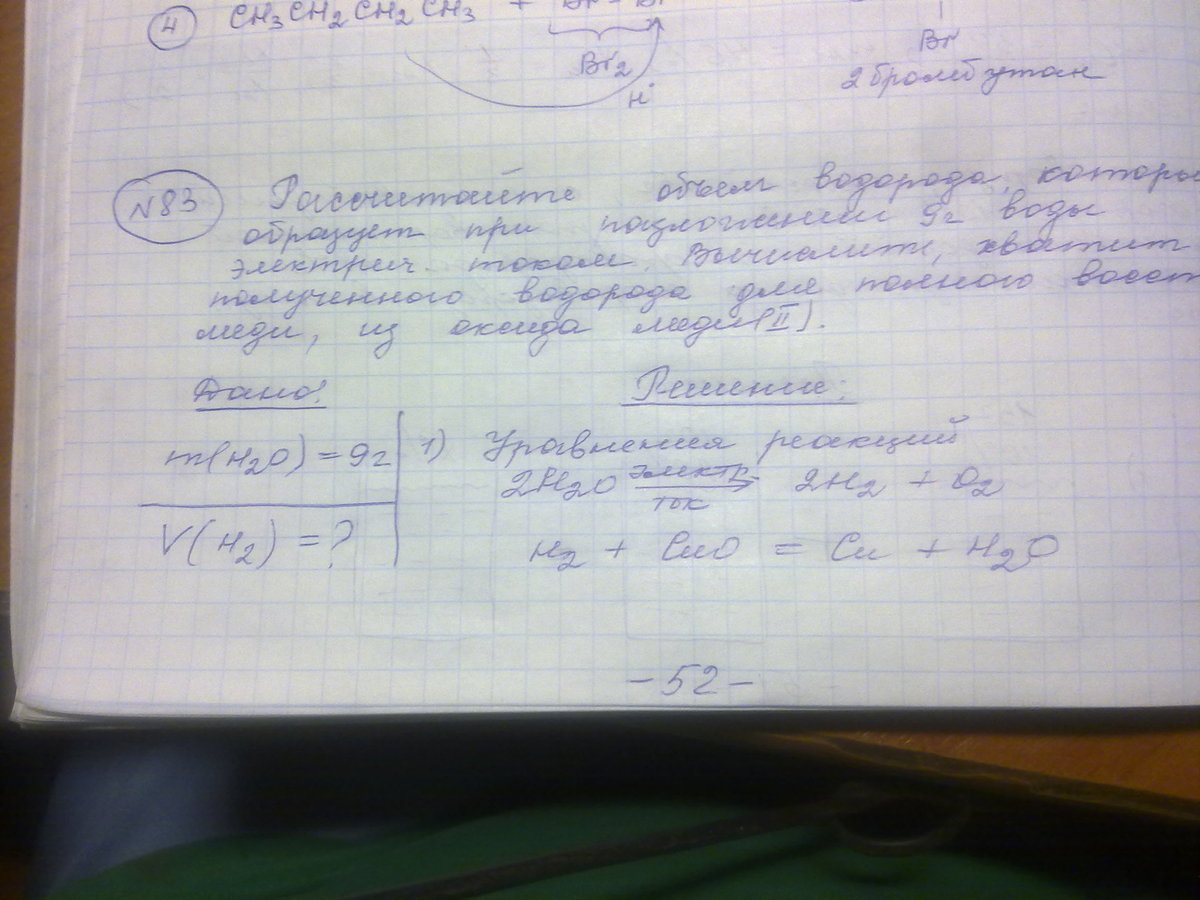 4 CH3CH2CH2CH3 + Br - Br
Br2
H
Br
2 бромбутан
№83 Рассчитайте объем водорода, которы
образует при разложении 9г воды
электрич. током. Вычислите, хватит
полученного водорода для полного восст
меди, из оксида меди (II).
Дано: Решение:
m(H2O) = 9г 1) Уравнения реакций
2H2O электр. ток → 2H2 + O2
V(H2) = ?
H2 + CuO = Cu + H2O
-52-